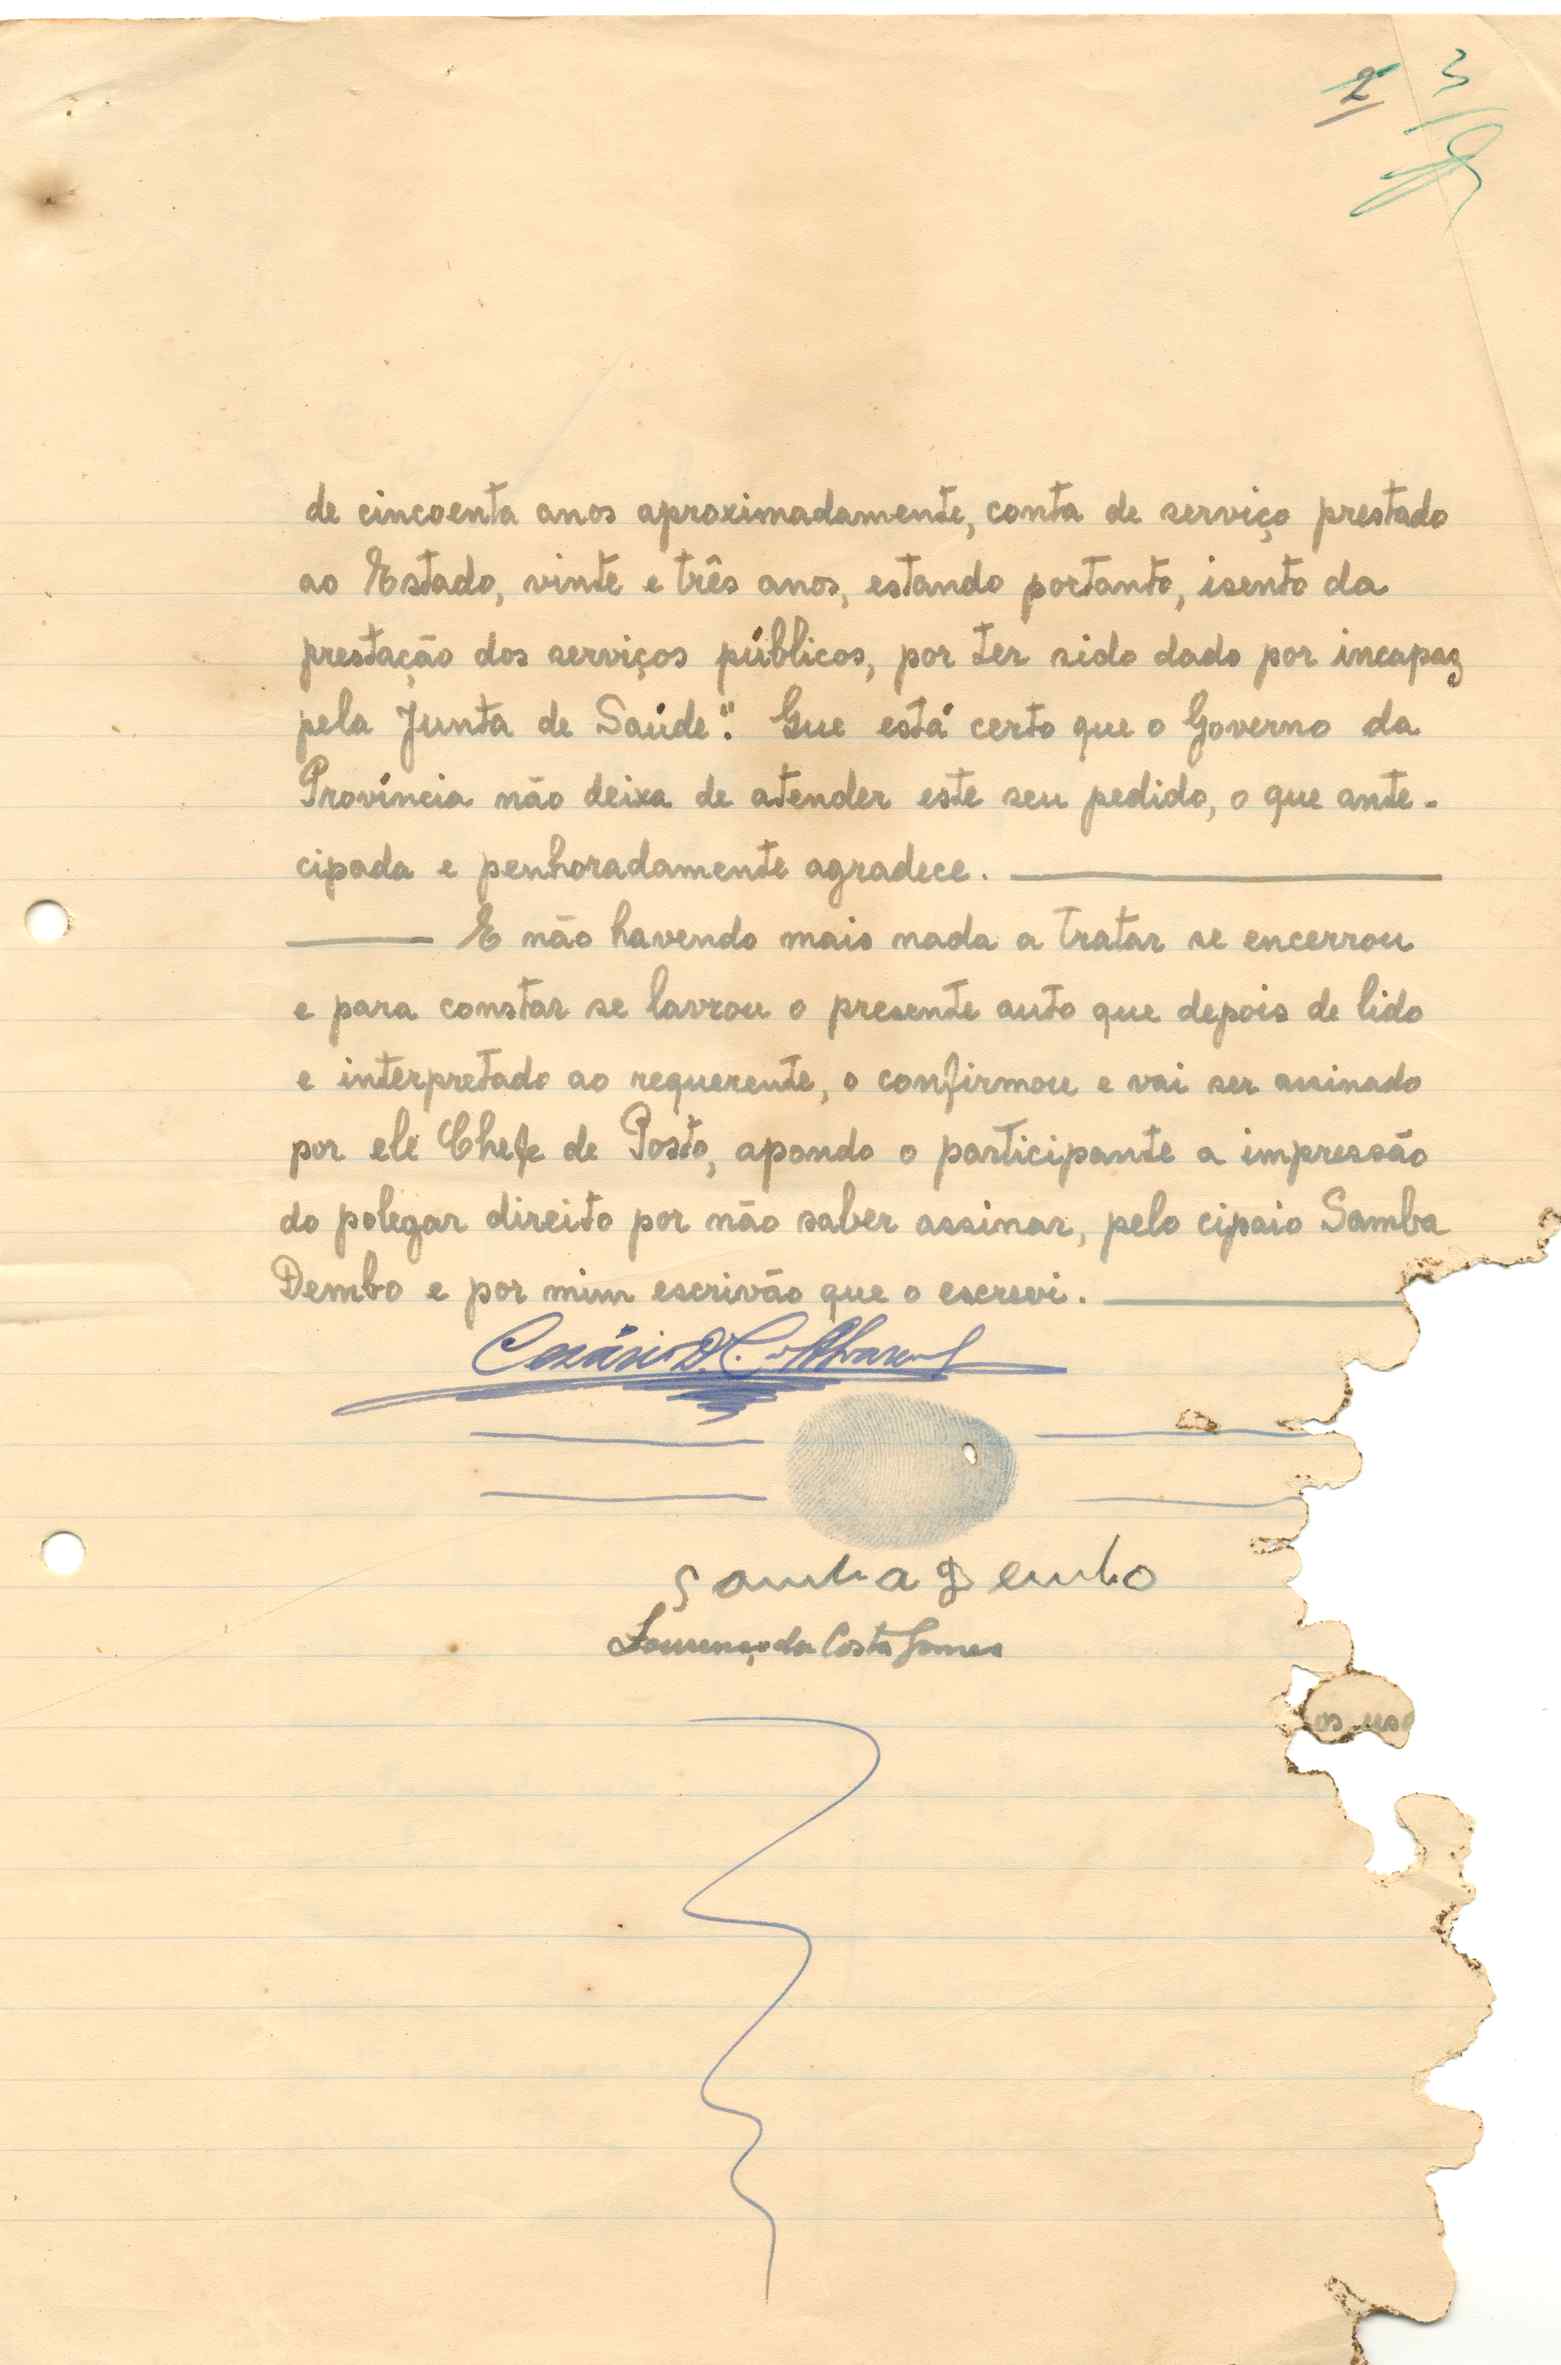 2 3
de cincoenta anos aproximadamente, conta de serviço prestado
ao Estado, vinte e três anos, estando portanto, isento da
prestação dos serviços públicos, por ter sido dado por incapaz
pela Junta de Saúde". Que está certo que o Governo da
Província não deixa de atender este seu pedido, o que ante-
cipada e penhoradamente agradece.
E não havendo mais nada a tratar se encerrou
e para constar se lavrou o presente auto que depois de lido
e interpretado ao requerente, o confirmou e vai ser assinado
por ele Chefe de Posto, apondo o participante a impressão
do polegar direito por não saber assinar, pelo cipaio Samba
Dembo e por mim escrivão que o escrevi.
Cesário D. C.
Samba Dembo
Lourenço da Costa Gomes
os